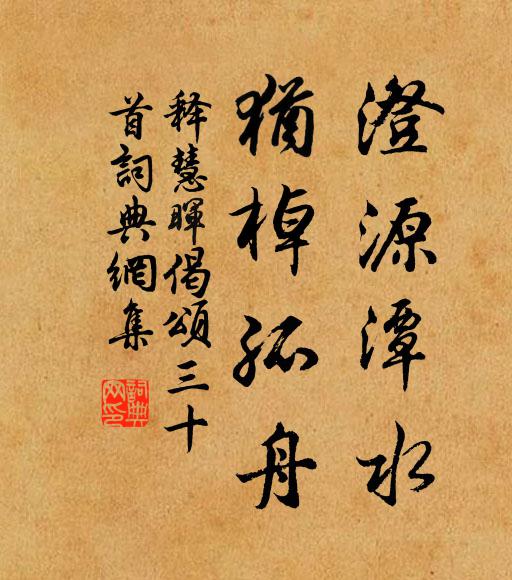 澄源潭水
猶棹孤舟
释慧暉偈頌三十
首詞典網集
詞典
网印